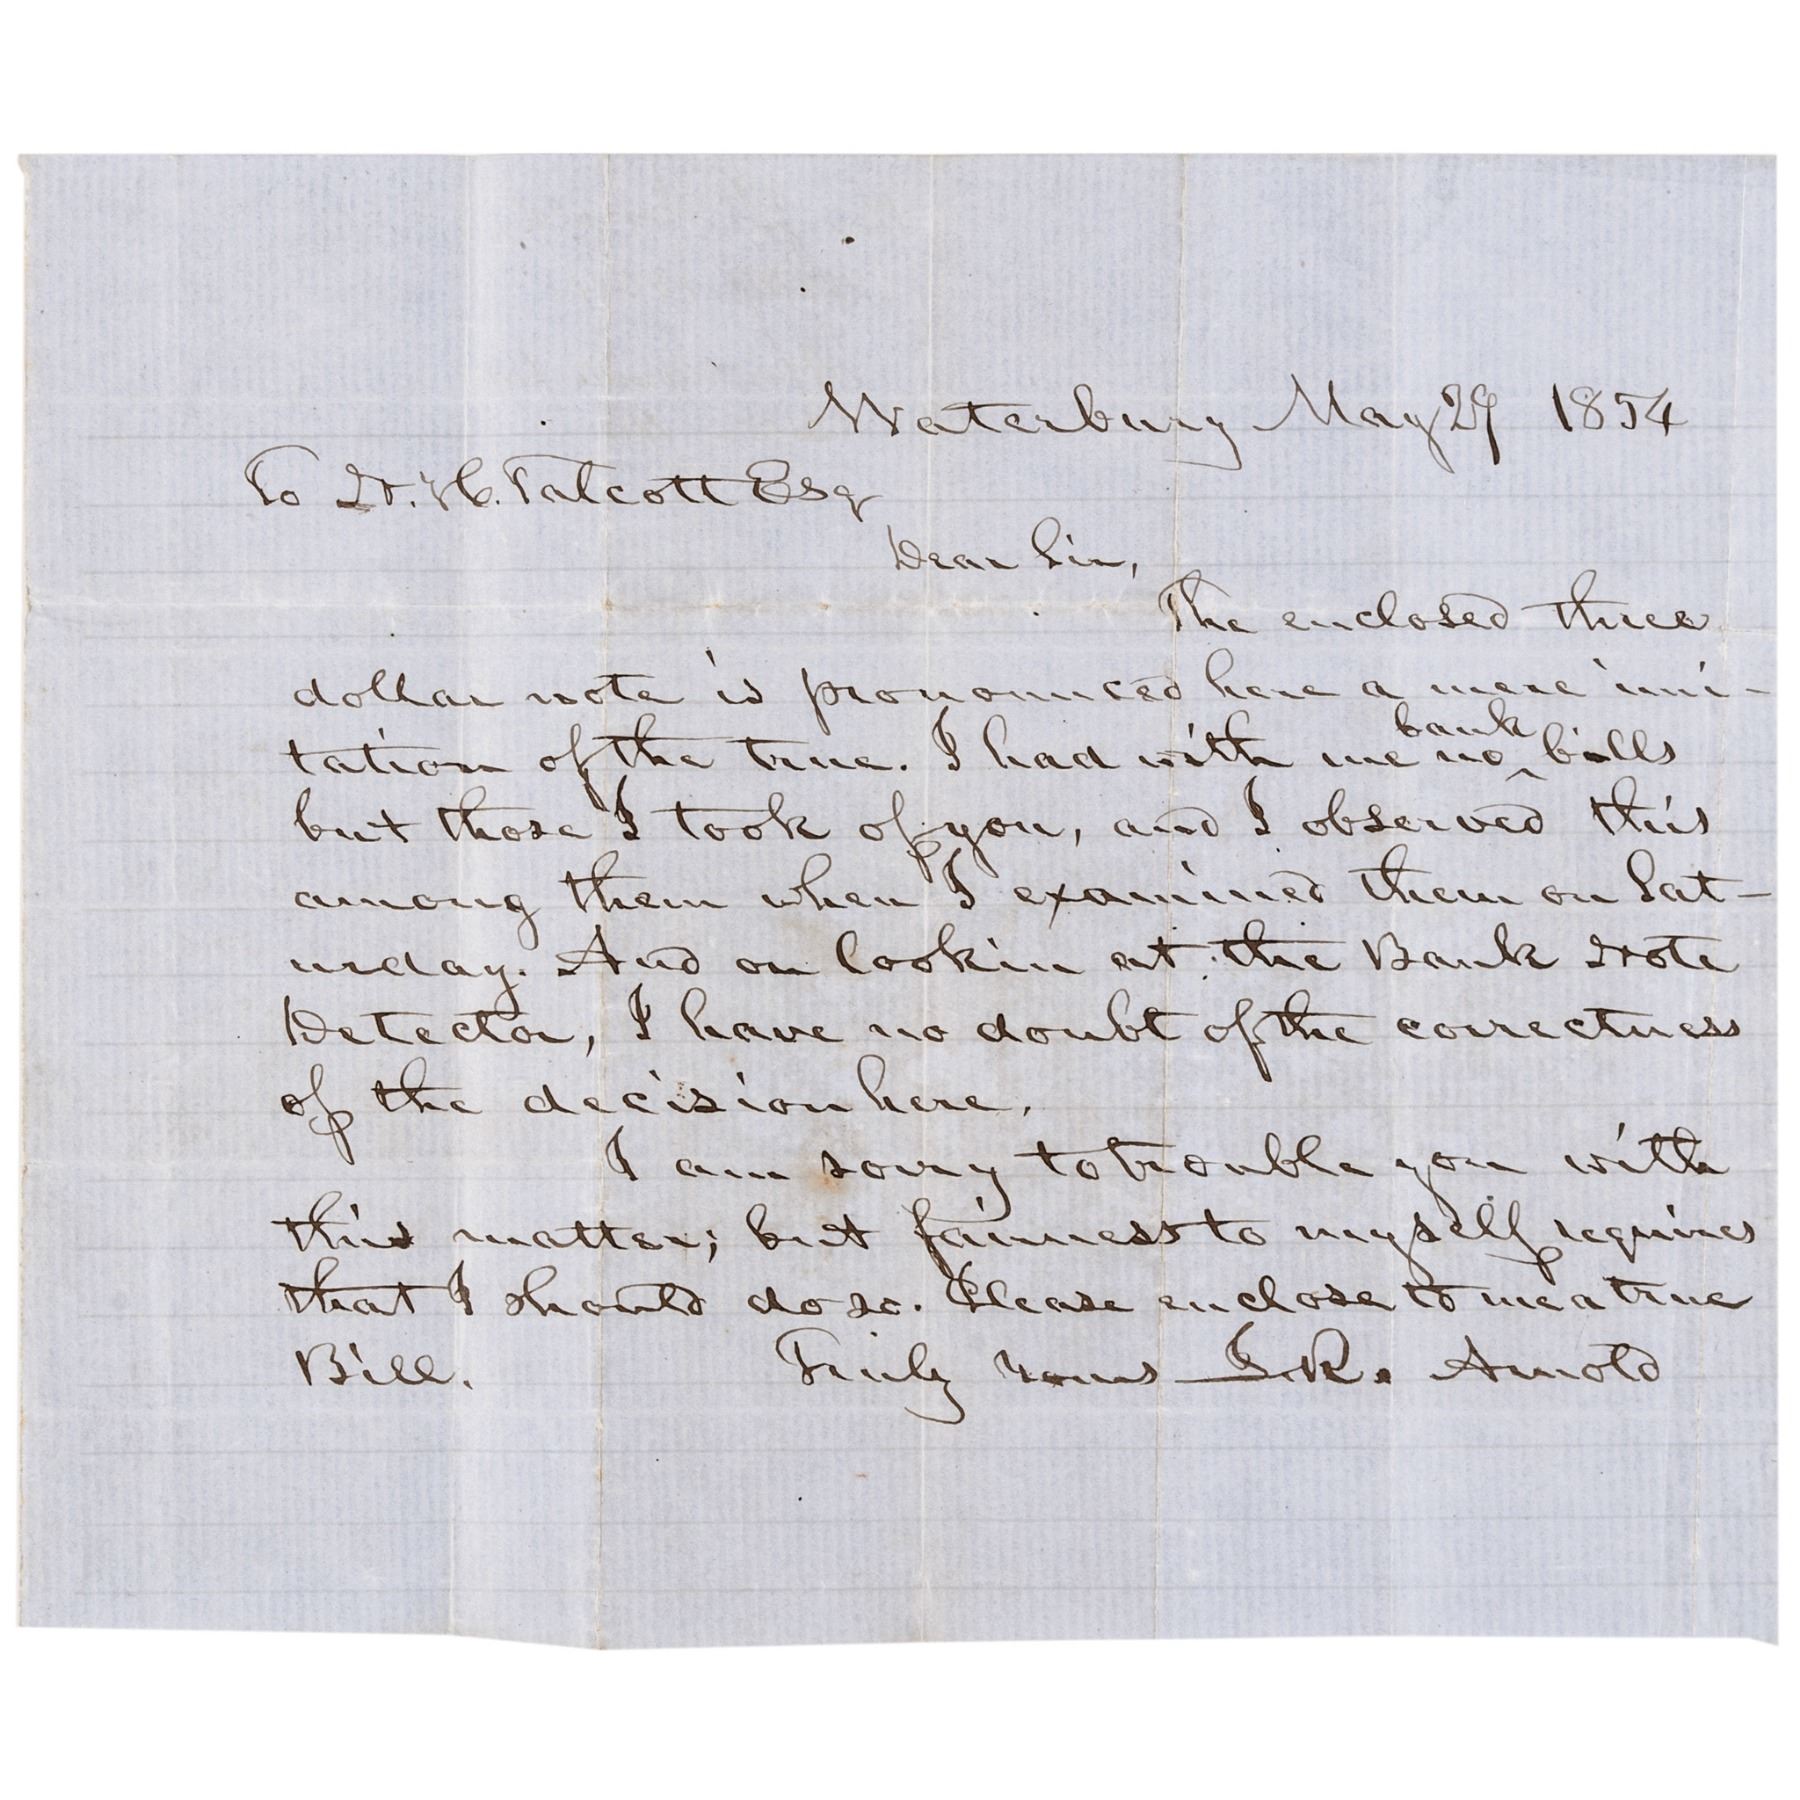 Waterbury May 29 1854
To N. H. Talcott Esq
Dear Sir,
The enclosed three
dollar note is pronounced here a mere imi-
tation of the true. I had with me no ^bank bills
but those I took of you, and I observed this
among them when I examined them on Sat-
urday. And on lookin at the Bank Note
Detector, I have no doubt of the correctness
of the decision here.
I am sorry to trouble you with
this matter; but fairness to myself requires
that I should do so. Please enclose to me a true
Bill. Truly Yours S. R. Arnold